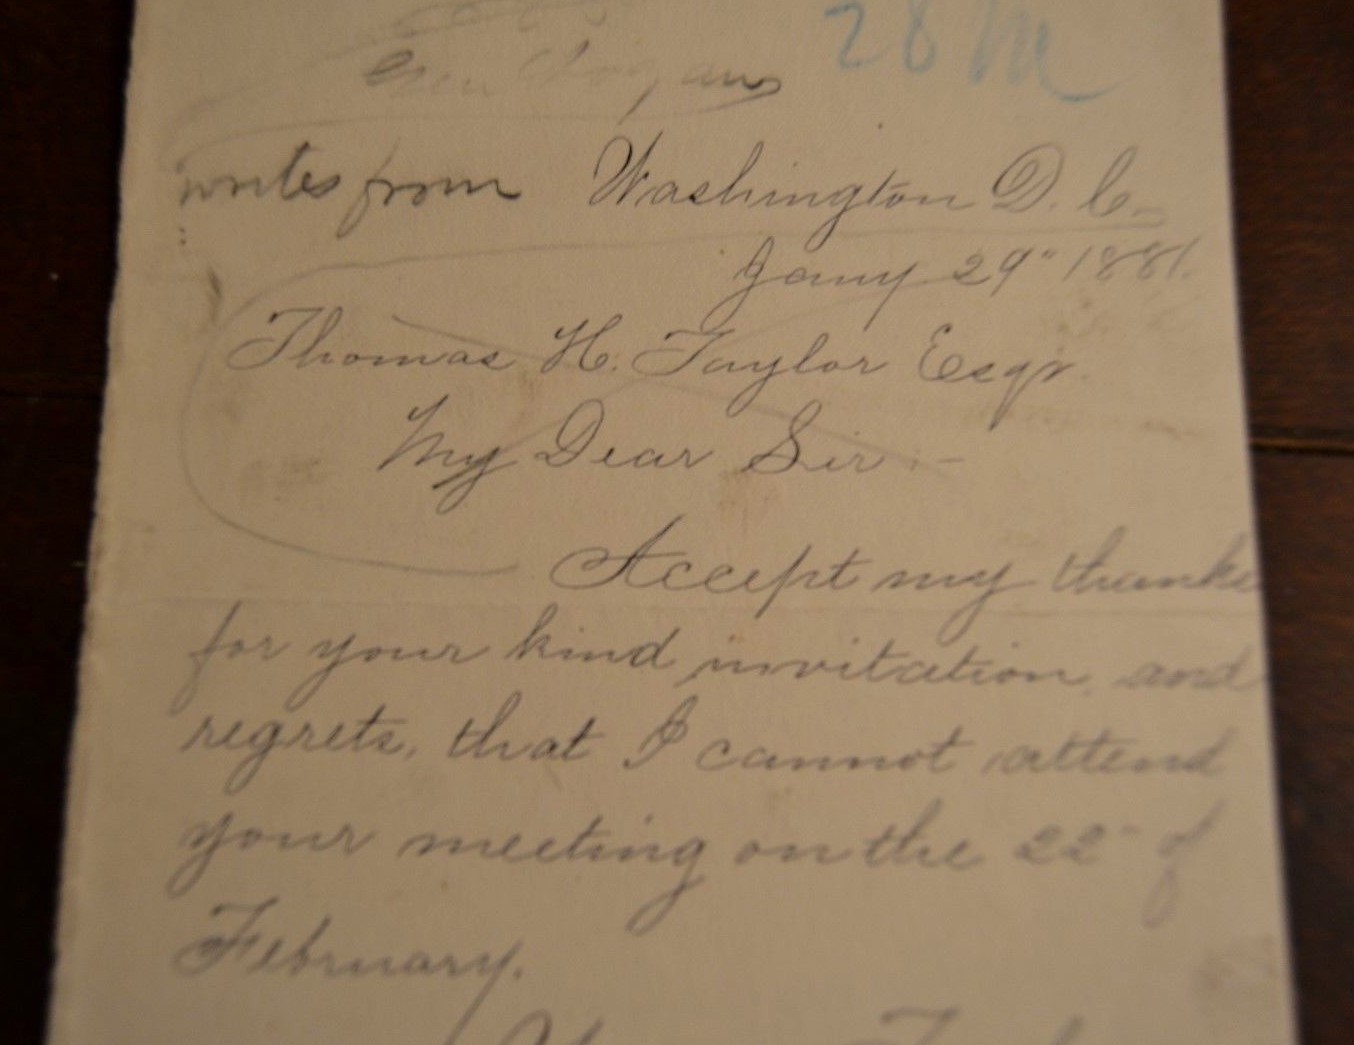 28
writes from Washington D. C.
Jany 29" 1881.
Thomas H. Taylor Esqr.
My Dear Sir :-
Accept my thanks
for your kind invitation, and
regrets, that I cannot attend
your meeting on the 22" of
February.